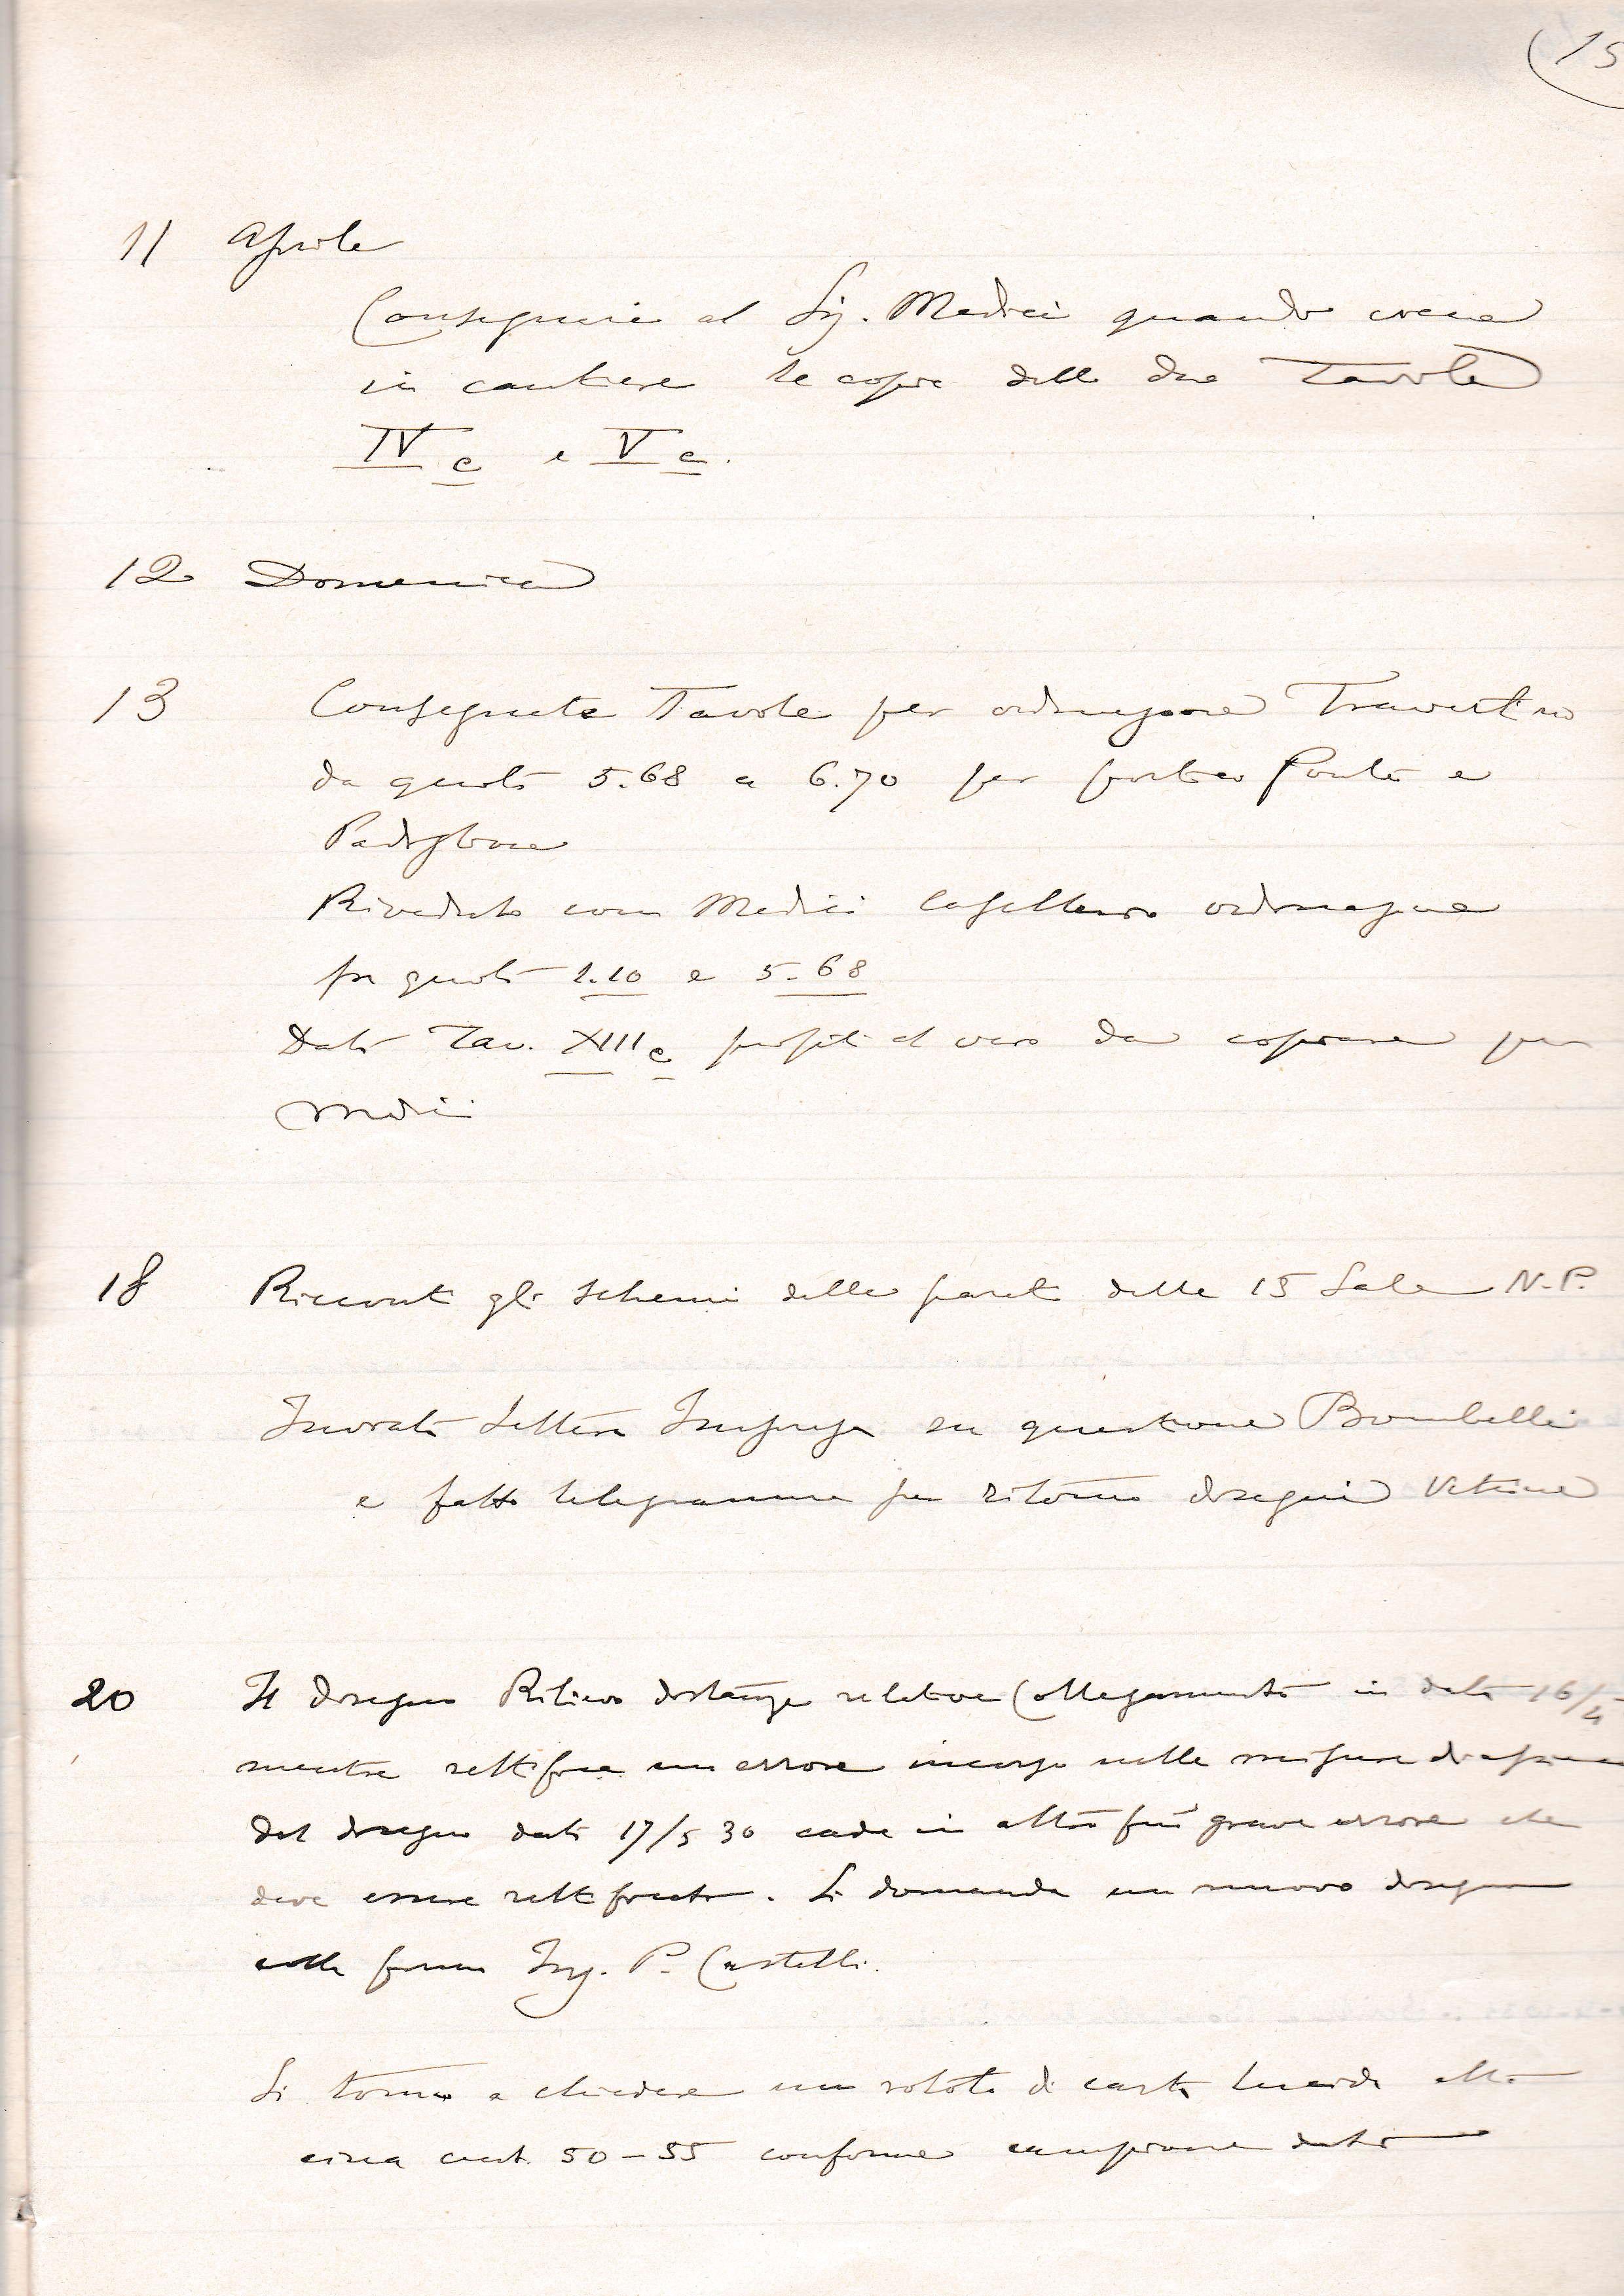 (15
11 Aprile
Consegnare al Sig. Medici quando viene
in cantiere le copie delle due Tavole
IV c e V c.
12 Domenica
13 Consegnate Tavole per ordinazione Travertino
da quota 5.68 a 6.70 per portico fronte e
Padiglione
Riveduto con Medici ordinazione
fra quota 1.10 e 5.68
Dato Tav. XIII c profili al vero da copiare per
Medici
18 Ricevuti gli schemi delle pareti delle 15 Sale N.P.
Inviata lettera Impresa su questione Bombelli
e fatto telegramma per ritorno disegni Vetrine
20 Il disegno Rilievo distanze relative Collegamento in data 16/4
mentre rettifica un errore incorso nelle misure
del disegno data 17/5 30 cade in altro più grave errore che
deve essere rettificato. Si domanda un nuovo disegno
colla firma Ing. P. Castelli.
Si torna a chiedere un rotolo di carta lucida alta
circa cent. 50-55 conforme campione dato